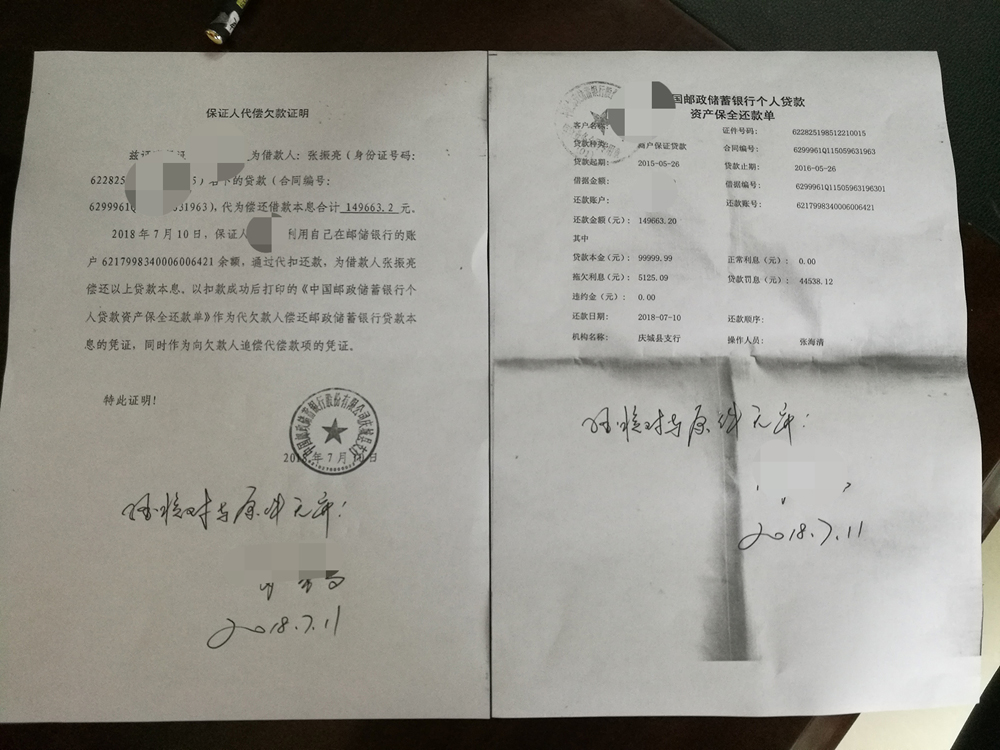 保证人代偿欠款证明
为借款人：张振亮（身份证号码：
名下的贷款（合同编号：
6299961Q 31963），代为偿还借款本息合计 149663.2 元。
2018 年 7 月 10 日，保证人 利用自己在邮储银行的账
户 6217998340006006421 余额，通过代扣还款，为借款人张振亮
偿还以上贷款本息。以扣款成功后打印的《中国邮政储蓄银行个
人贷款资产保全还款单》作为代欠款人偿还邮政储蓄银行贷款本
息的凭证，同时作为向欠款人追偿代偿款项的凭证。
特此证明！
中国邮政储蓄银行股份有限公司庆城县支行
2018 年 7 月 日
经核对与原件无异：
2018.7.11
国邮政储蓄银行个人贷款
资产保全还款单
客户名称： 证件号码： 622825198512210015
贷款种类： 商户保证贷款 合同编号： 6299961Q115059631963
贷款起期： 2015-05-26 贷款止期： 2016-05-26
借据金额： 借据编号： 6299961Q11505963196301
还款账户： 还款账号： 6217998340006006421
还款金额（元）： 149663.20
其中
贷款本金（元）： 99999.99 正常利息（元）： 0.00
拖欠利息（元）： 5125.09 贷款罚息（元）： 44538.12
违约金（元）： 0.00
还款日期： 2018-07-10 还款顺序：
机构名称： 庆城县支行 操作人员： 张海清
经核对与原件无异：
2018.7.11